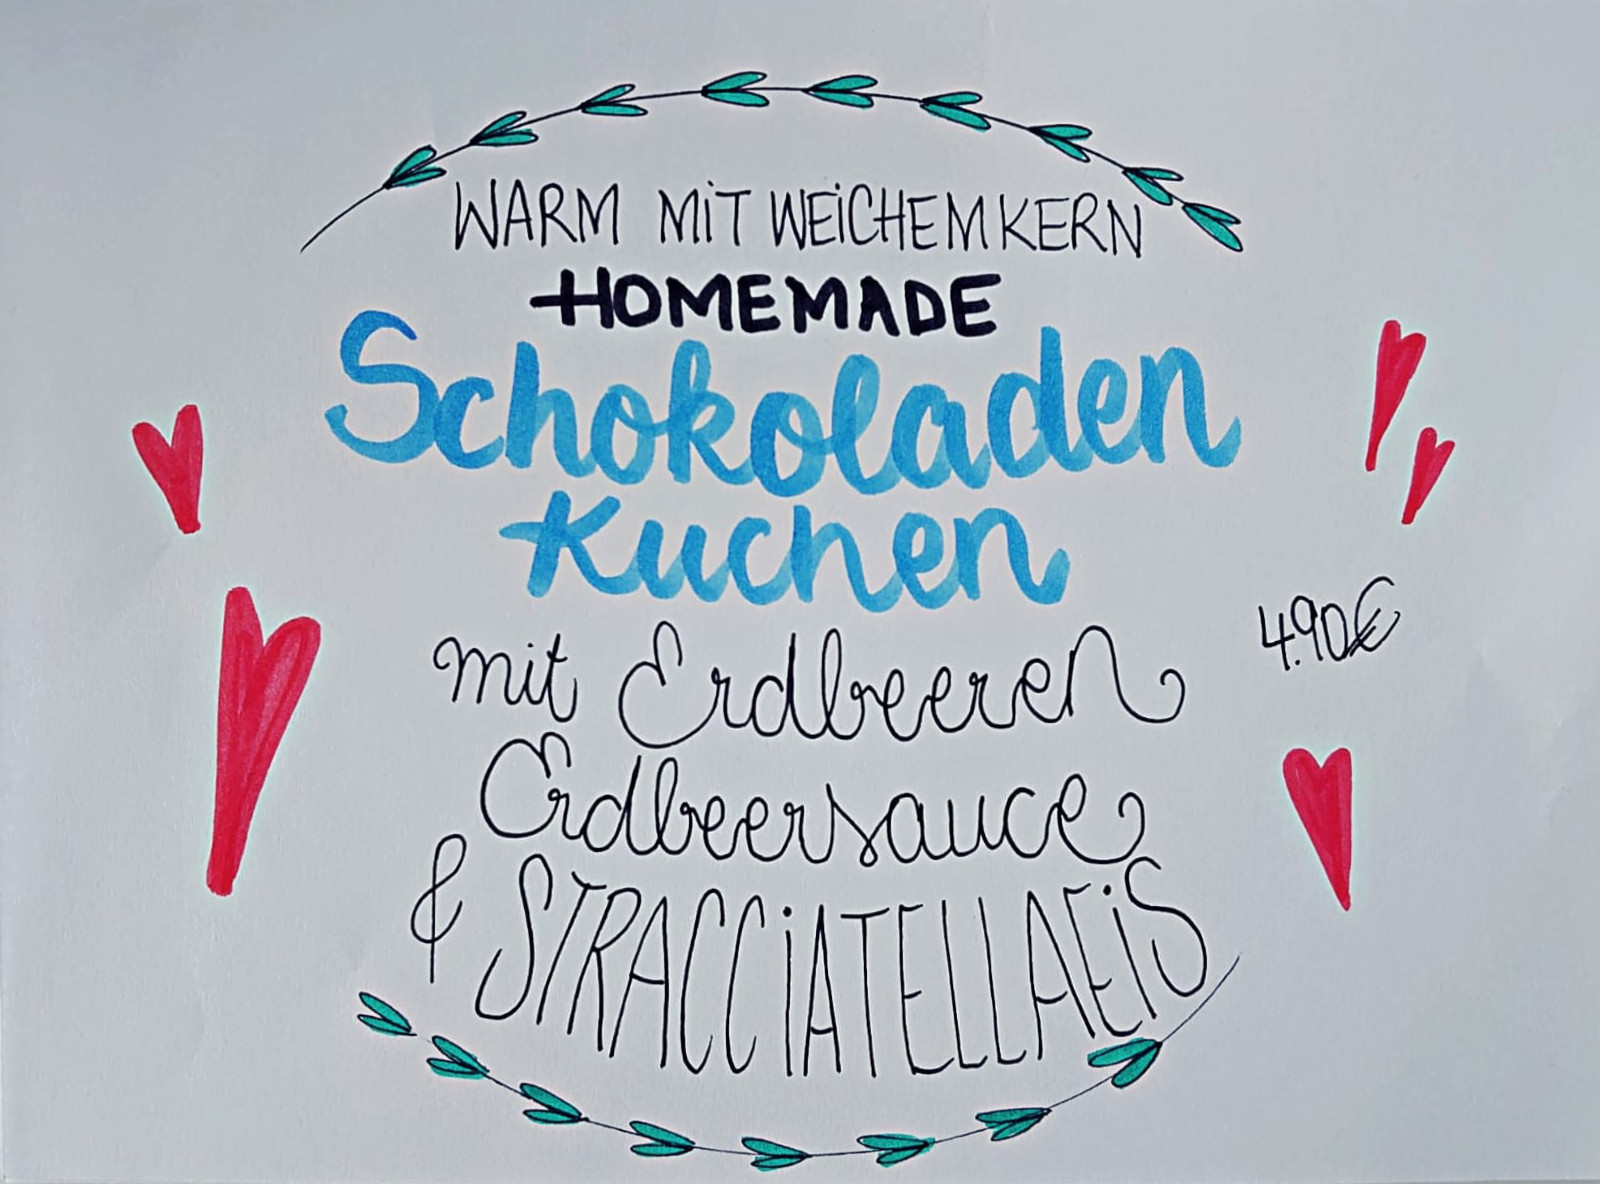 WARM MiT WEiCHEM KERN
HOMEMADE
Schokoladen
Kuchen
mit Erdbeeren
4.90€
Erdbeersauce
& STRACCiATELLAEiS